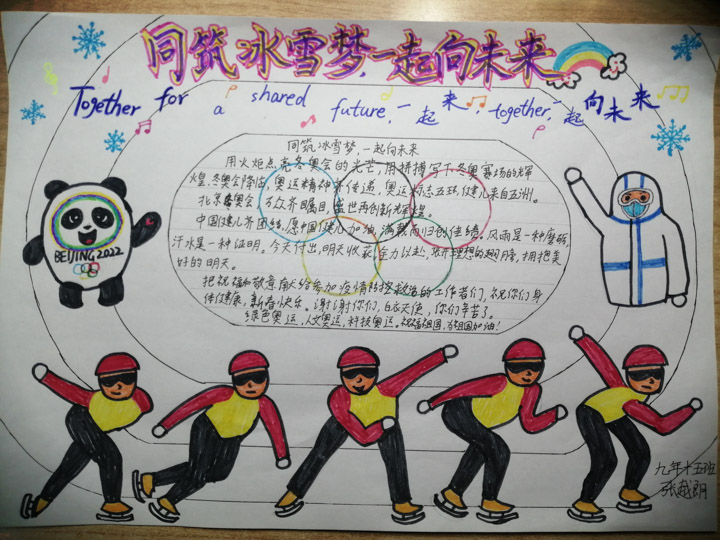 同筑冰雪梦,一起向未来
Together for a shared future,一起来,together,一起向未来
同筑冰雪梦,一起向未来
用火炬点亮冬奥会的光芒,用拼搏写下冬奥赛场的辉
煌。冬奥会降临,奥运精神来传递。奥运标志五环,健儿来自五洲。
北京冬奥会,万众齐瞩目,盛世再创新辉煌。
中国健儿齐团结,愿中国健儿加油,满载而归创佳绩。风雨是一种磨砺,
汗水是一种证明。今天付出,明天收获,全力以赴,张开理想的翅膀,拥抱美
好的明天。
把祝福和敬意献给参加疫情防控救治的工作者们,祝你们身
体健康,新春快乐。谢谢你们,白衣天使,你们辛苦了。
绿色奥运,人文奥运,科技奥运。祝福祖国,为祖国加油!
BEIJING 2022
九年十五班
张越朗